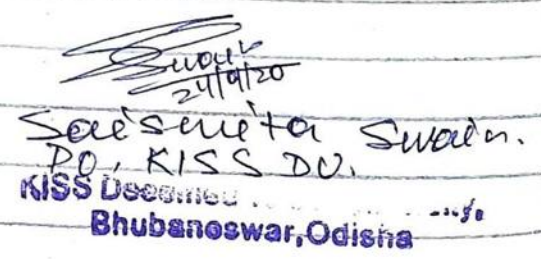 Swain
24/9/20
Saismita Swain.
PO, KISS DU.
KISS Deemed
Bhubaneswar, Odisha